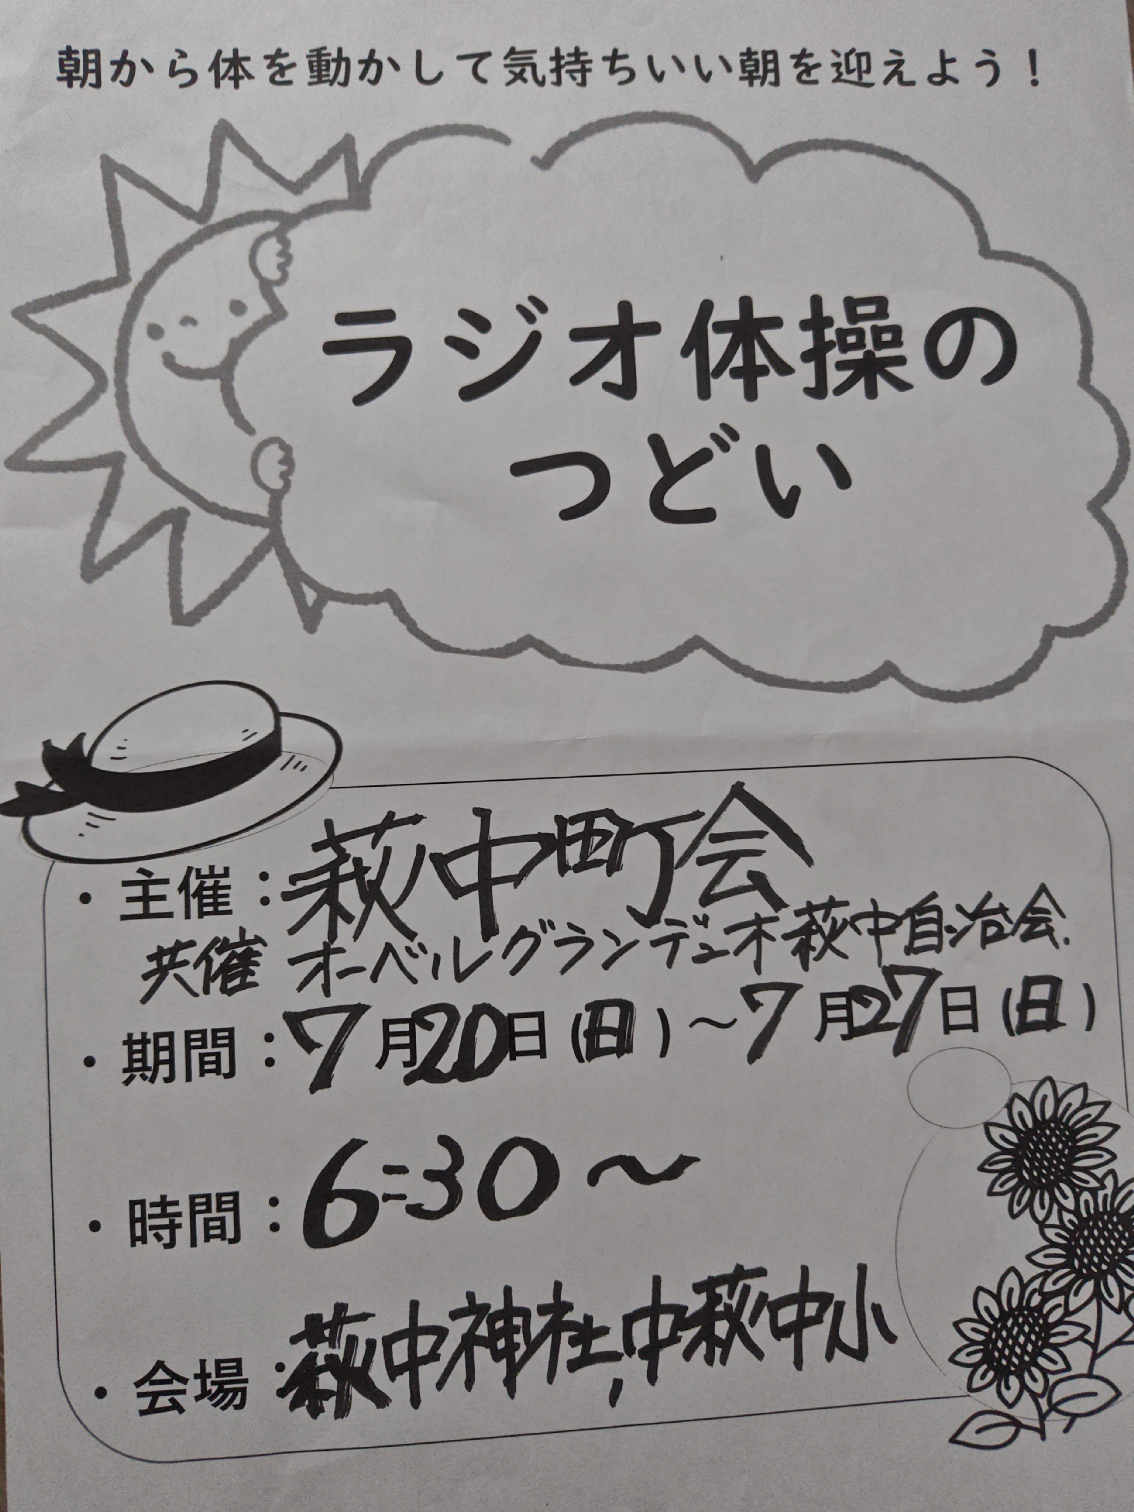 朝から体を動かして気持ちいい朝を迎えよう！
ラジオ体操の
つどい
・主催：萩中町会
共催 オーベルグランデュオ萩中自治会.
・期間：7月20日(日)～7月27日(日)
・時間：6:30～
・会場：萩中神社,中萩中小